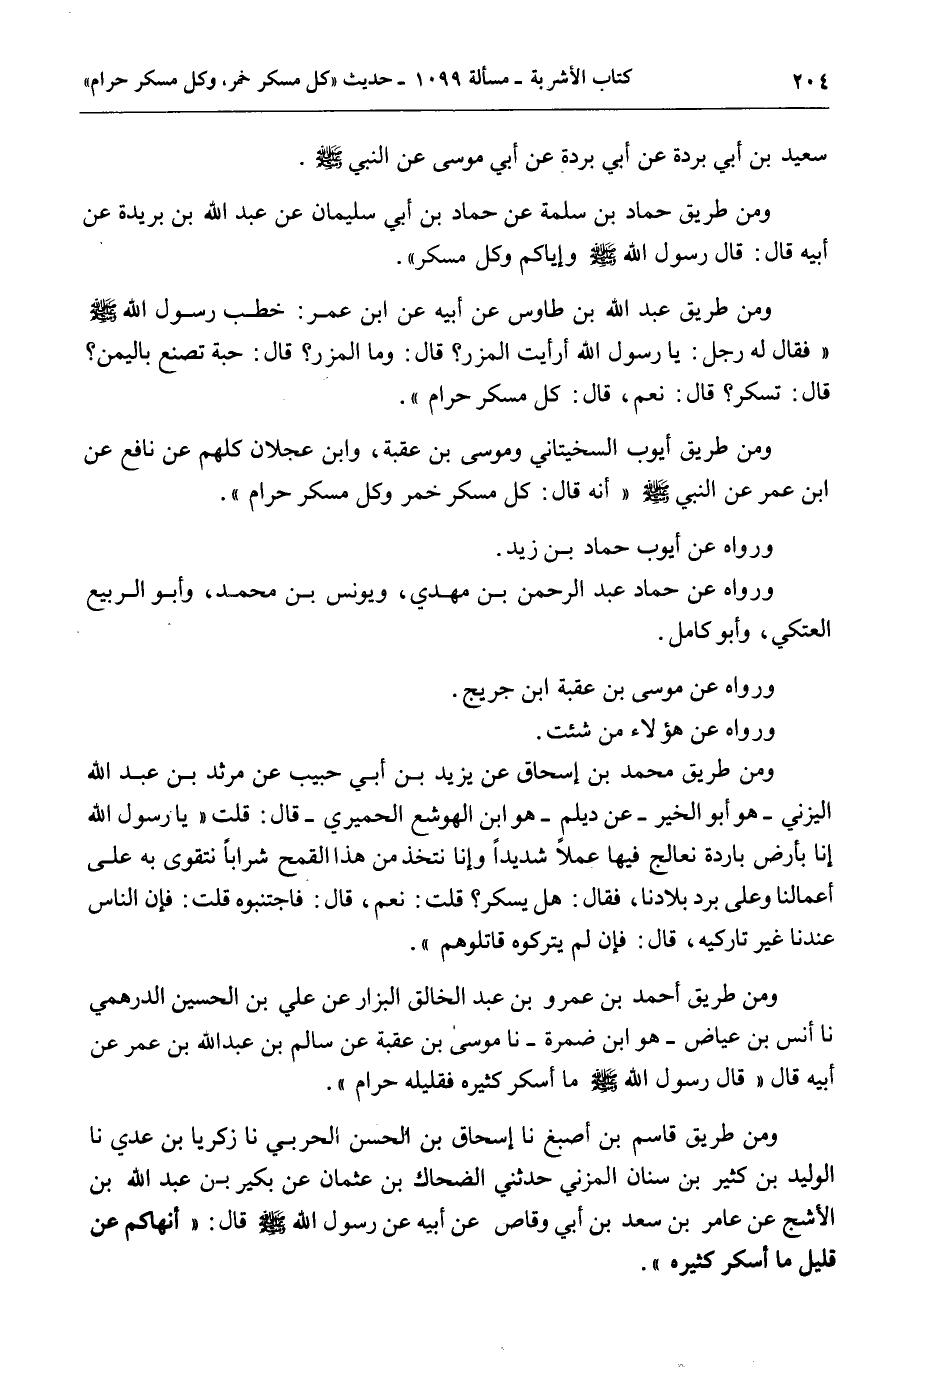 ٢٠٤ كتاب الأشربة ـ مسألة ١٠٩٩ ـ حديث «كل مسكر خمر، وكل مسكر حرام»
سعيد بن أبي بردة عن أبي بردة عن أبي موسى عن النبي ﷺ .
ومن طريق حماد بن سلمة عن حماد بن أبي سليمان عن عبد الله بن بريدة عن
أبيه قال: قال رسول الله ﷺ وإياكم وكل مسكر».
ومن طريق عبد الله بن طاوس عن أبيه عن ابن عمر: خطب رسول الله ﷺ
« فقال له رجل: يا رسول الله أرأيت المزر؟ قال: وما المزر؟ قال: حبة تصنع باليمن؟
قال: تسكر؟ قال: نعم، قال: كل مسكر حرام ».
ومن طريق أيوب السختياني وموسى بن عقبة، وابن عجلان كلهم عن نافع عن
ابن عمر عن النبي ﷺ « أنه قال: كل مسكر خمر وكل مسكر حرام ».
ورواه عن أيوب حماد بن زيد.
ورواه عن حماد عبد الرحمن بن مهدي، ويونس بن محمد، وأبو الربيع
العتكي، وأبو كامل.
ورواه عن موسى بن عقبة ابن جريج.
ورواه عن هؤلاء من شئت.
ومن طريق محمد بن إسحاق عن يزيد بن أبي حبيب عن مرثد بن عبد الله
اليزني ـ هو أبو الخير ـ عن ديلم ـ هو ابن الهوشع الحميري ـ قال: قلت « يا رسول الله
إنا بأرض باردة نعالج فيها عملاً شديداً وإنا نتخذ من هذا القمح شراباً نتقوى به على
أعمالنا وعلى برد بلادنا، فقال: هل يسكر؟ قلت: نعم، قال: فاجتنبوه قلت: فإن الناس
عندنا غير تاركيه، قال: فإن لم يتركوه قاتلوهم ».
ومن طريق أحمد بن عمرو بن عبد الخالق البزار عن علي بن الحسين الدرهمي
نا أنس بن عياض ـ هو ابن ضمرة ـ نا موسى بن عقبة عن سالم بن عبدالله بن عمر عن
أبيه قال « قال رسول الله ﷺ ما أسكر كثيره فقليله حرام ».
ومن طريق قاسم بن أصبغ نا إسحاق بن الحسن الحربي نا زكريا بن عدي نا
الوليد بن كثير بن سنان المزني حدثني الضحاك بن عثمان عن بكير بن عبد الله بن
الأشج عن عامر بن سعد بن أبي وقاص عن أبيه عن رسول الله ﷺ قال: « أنهاكم عن
قليل ما أسكر كثيره ».